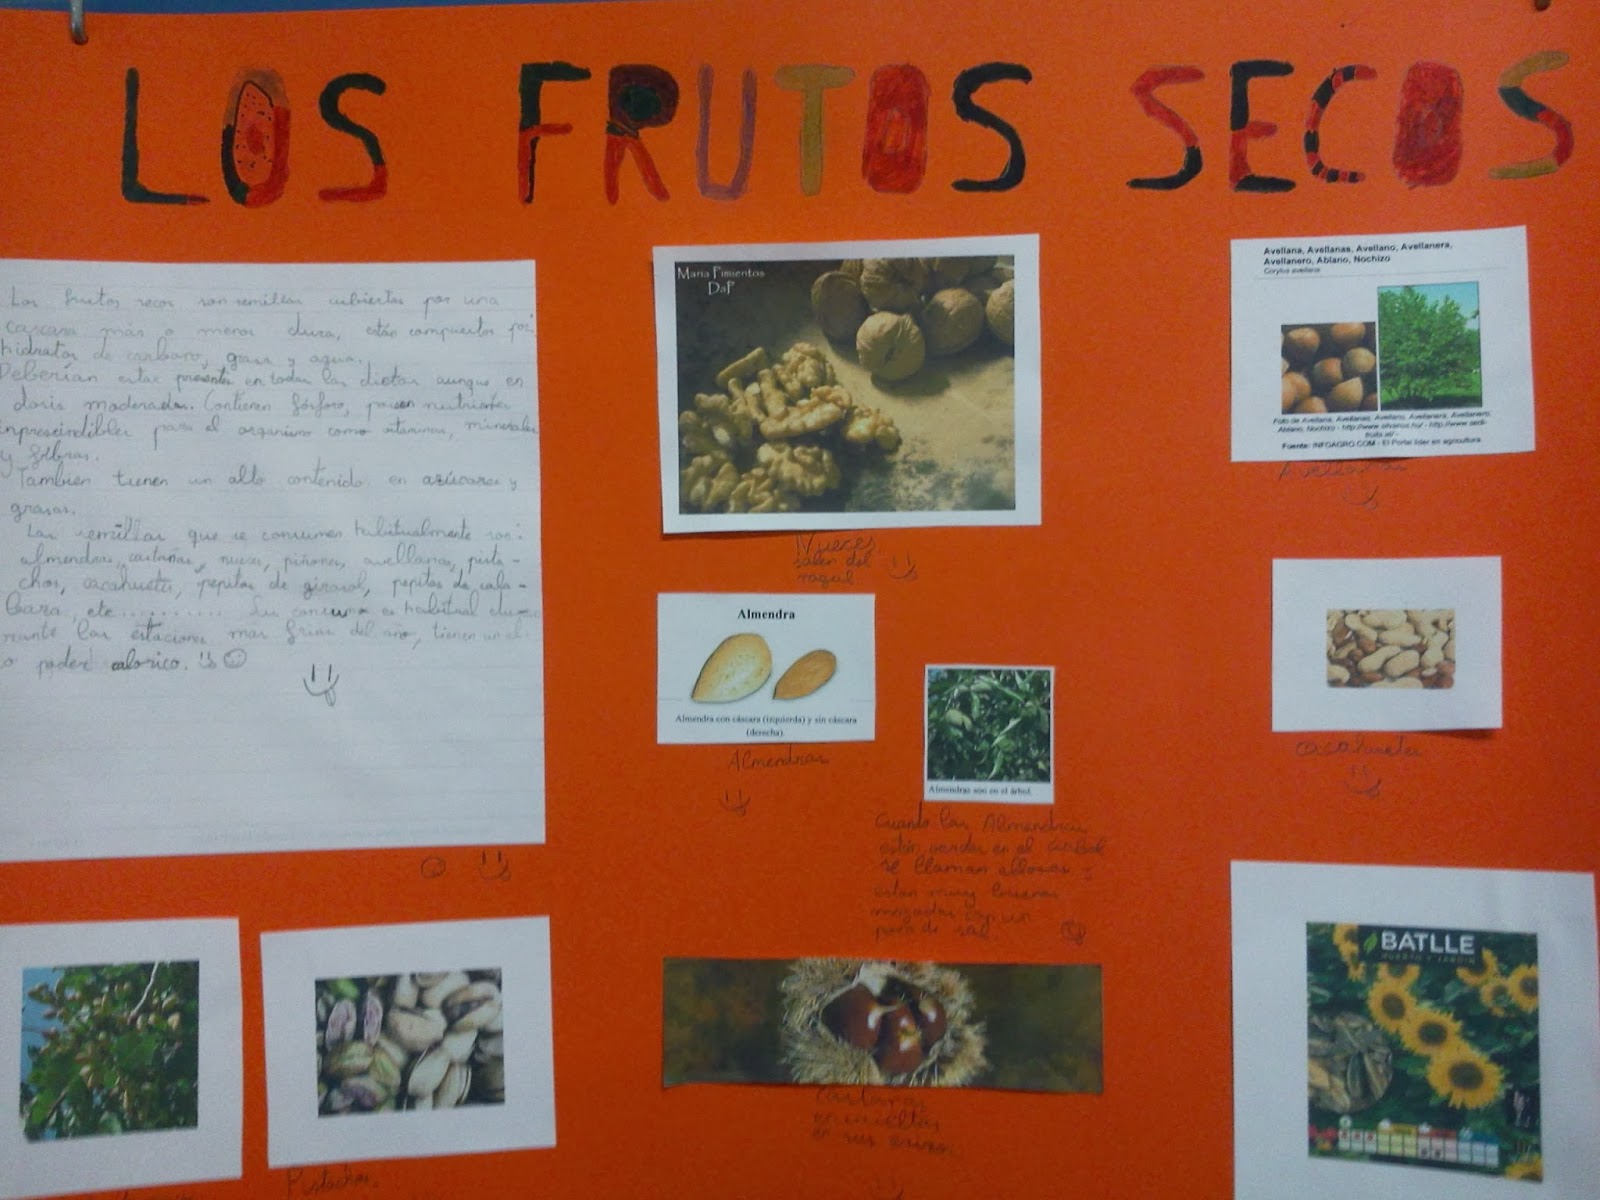 LOS FRUTOS SECOS
Los frutos secos son semillas cubiertas por una
cascara más o menos dura, están compuestos por
hidratos de carbono, grasa y agua.
Deberían estar presentes en todas las dietas aunque en
dosis moderadas. Contienen fósforo, poseen nutrientes
inprescindibles para el organismo como vitaminas, minerales
y fibras.
También tienen un alto contenido en azúcares y
grasas.
Las semillas que se consumen habitualmente son:
almendras, castañas, nueces, piñones, avellanas, pista-
chos, cacahuetes, pepitas de girasol, pepitas de cala-
baza, etc........... Su consumo es habitual du-
rante las estaciones más frias del año, tienen un al-
o poder calorico.
Maria Pimientos
DaP
Nueces
salen del
nogal
Almendra
Almendra con cáscara (izquierda) y sin cáscara
(derecha).
Almendras
Almendras son en el árbol.
Cuando las Almendras
están verdes en el arbol
se llaman allozas
estan muy buenas
con un
poco de sal.
Castañas
envueltas
en sus erizos.
Avellana, Avellanas, Avellano, Avellanera,
Avellanero, Ablano, Nochizo
Corylus avellana
Foto de Avellana, Avellanas, Avellano, Avellanera, Avellanero,
Ablano, Nochizo
Fuente: INFOAGRO.COM - El Portal líder en agricultura
Avellanas
cacahuetes
BATLLE
HUERTO Y JARDIN
Pistachos.